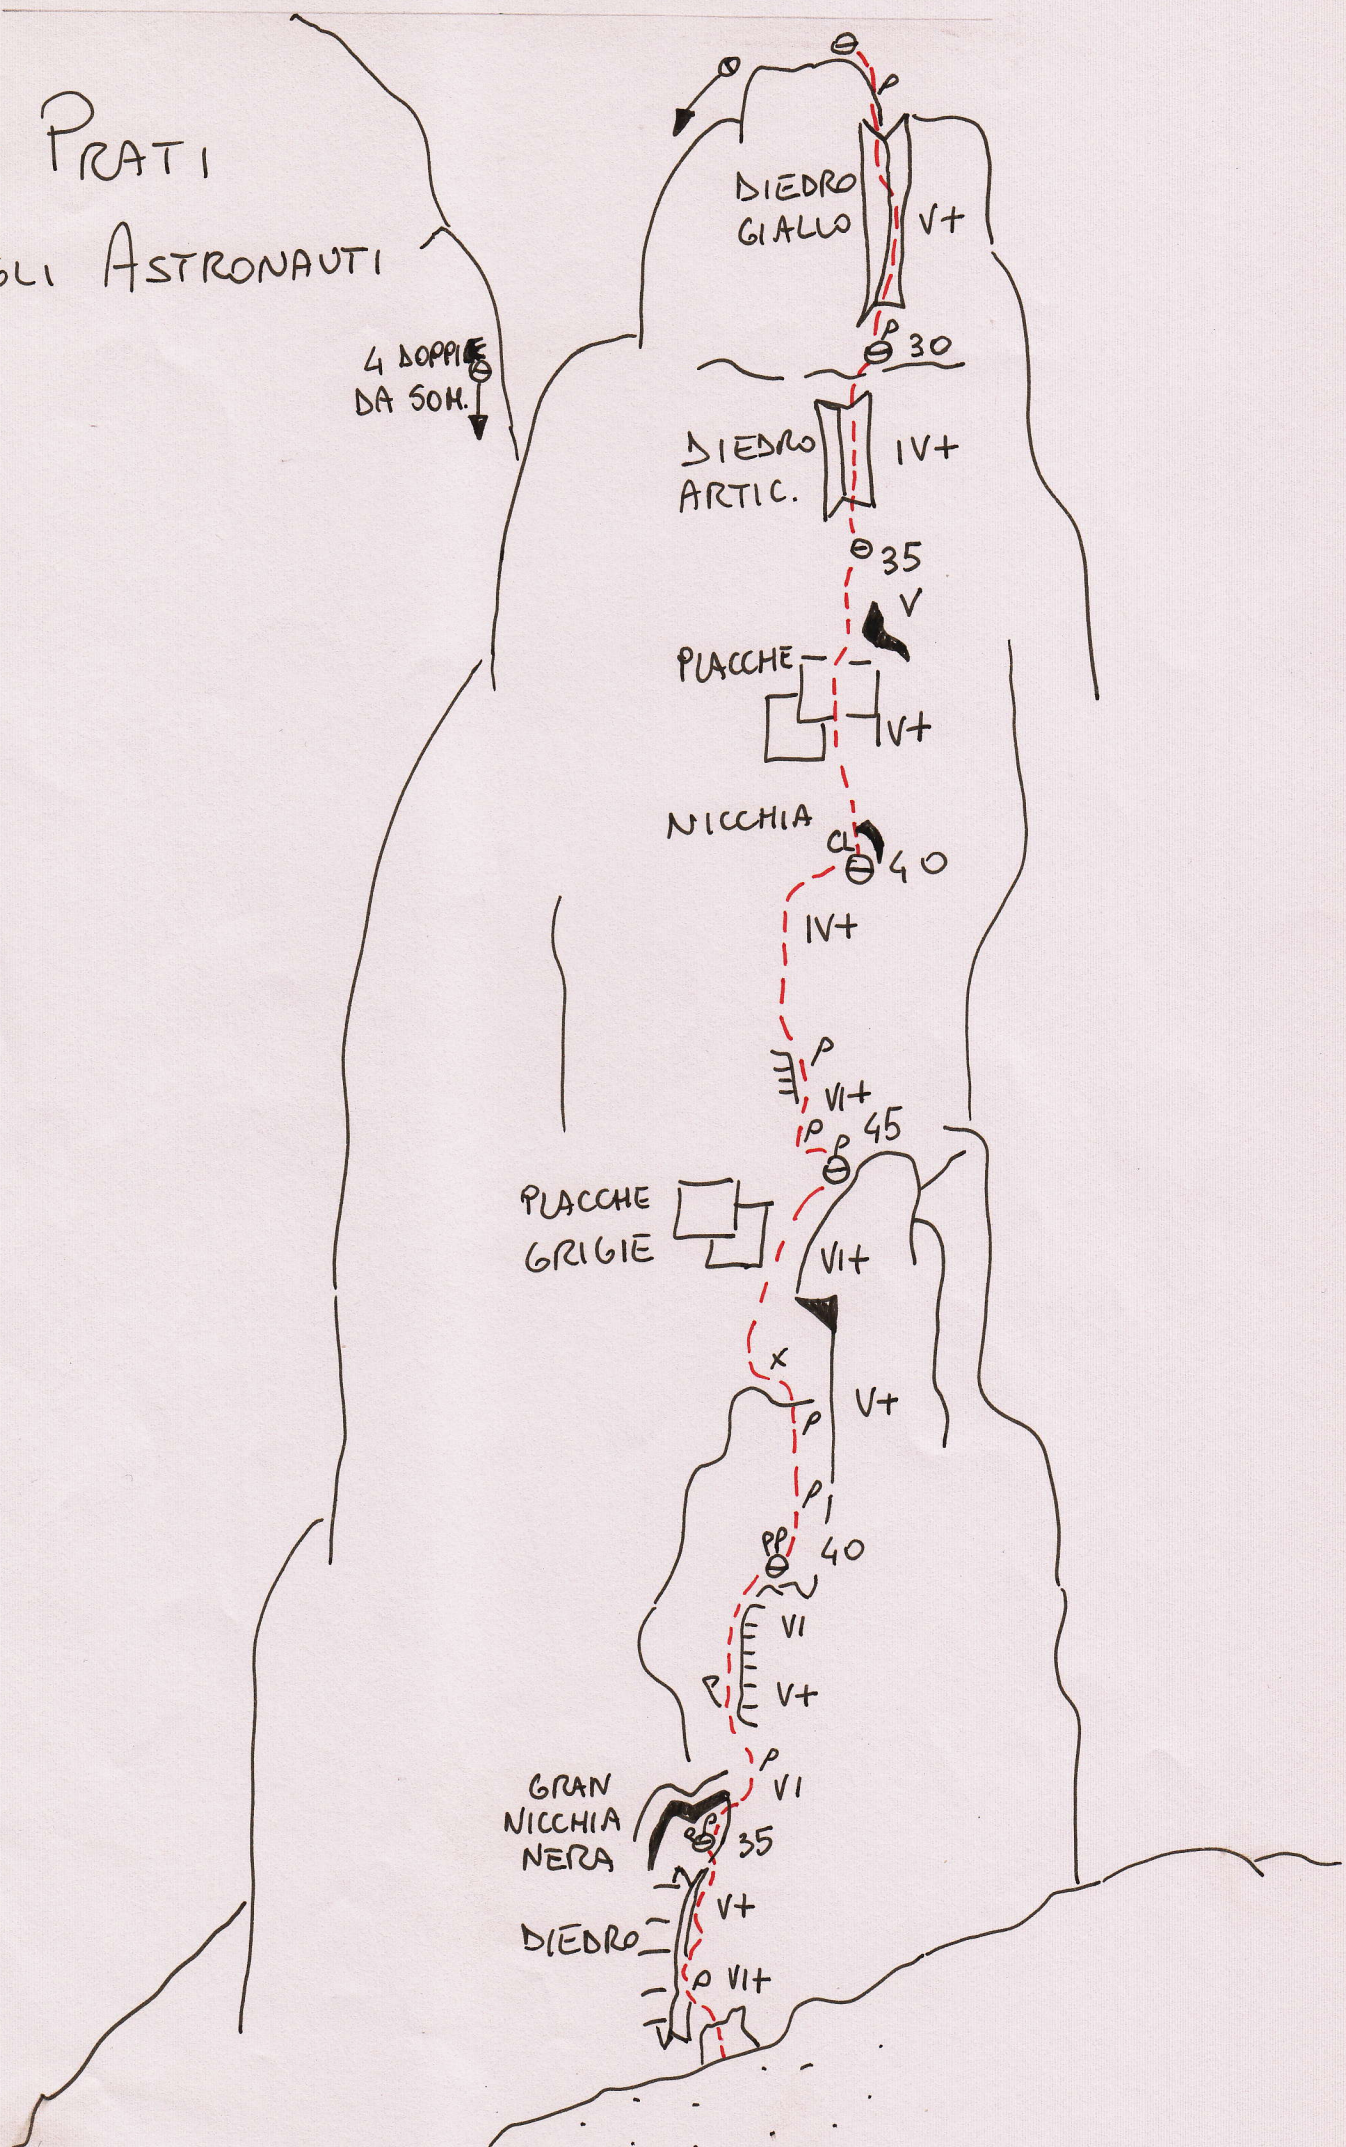 PRATI
GLI ASTRONAUTI
4 DOPPIE
DA SOM.
P
DIEDRO
GIALLO
V+
P
30
DIEDRO
ARTIC.
IV+
35
V
PLACCHE
V+
NICCHIA
CL
40
IV+
P
VI+
P
P
45
PLACCHE
GRIGIE
VI+
X
V+
P
P
PP
40
VI
P
V+
P
VI
GRAN
NICCHIA
NERA
PP
35
V+
DIEDRO
P
VI+